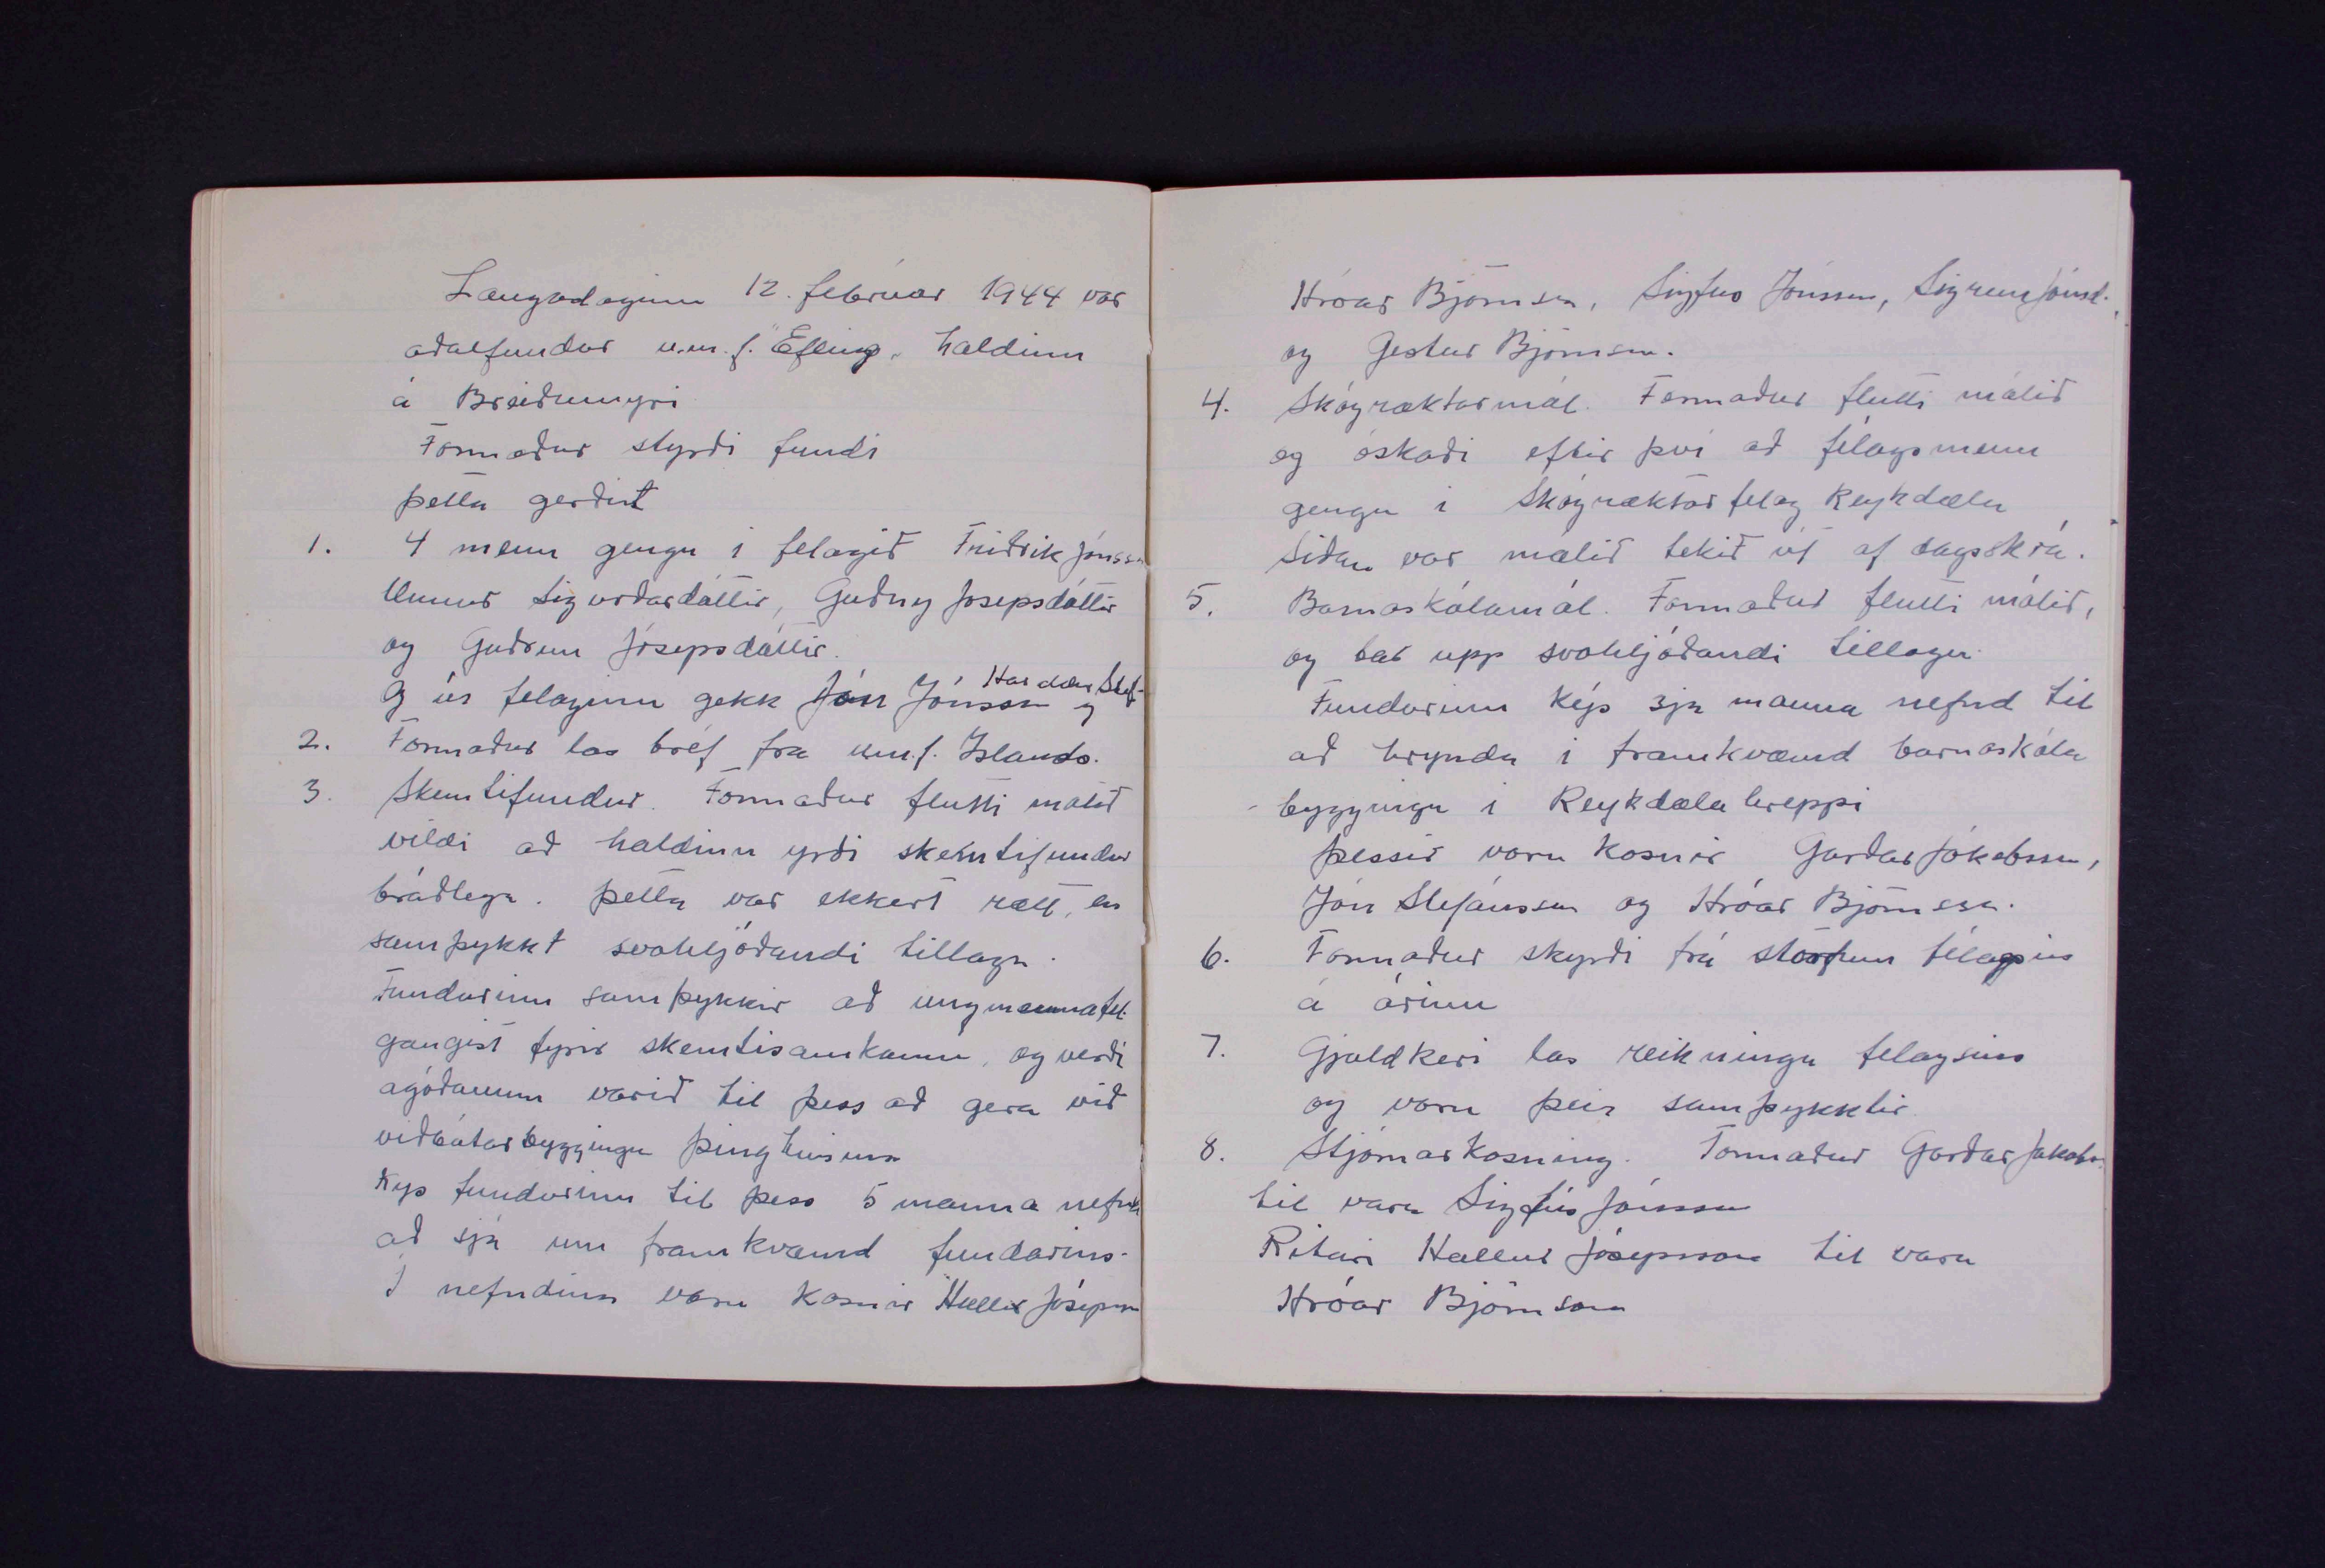 Laugadaginn 12. febrúar 1944 var
aðalfundur u.m.f. "Efling" haldinn
á Breiðumýri
Formaður styrði fundi
þetta gerðist
1. 4 menn gengu i felagið Friðrik Jónsson
Unnur Sigurðardóttir, Guðný Jósepsdóttir
og Guðrun Jósepsdóttir.
Og úr felaginu gekk Jón Jónsson og Haraldur Stef-
2. Formaður las bréf fra u.m.f. Islands.
3. Skemtifundur. Formaður flutti málið
vildi að haldinn yrði skemtifundur
bráðlega. þetta var ekkert rætt, en
samþykkt svohljóðandi tillaga.
Fundurinn samþykkir að ungmennafel.
gangist fyrir skemtisamkomu, og verði
agóðanum varið til þess að gera við
viðbótarbyggingu þinghúsins
Kýs fundurinn til þess 5 manna nefnd
að sjá um framkvæmd fundarins.
I nefndina voru kosnir Hallur Jósepsson
Hróar Björnsson, Sigfús Jónsson, Sigrun Jónsd.,
og Gestur Björnsson.
4. Skógræktarmál. Formaður flutti málið
og óskaði eftir því að félagsmenn
gengu i Skógræktarfelag Reykdæla
Síðan var malið tekið út af dagskrá.
5. Barnaskólamál. Formaður flutti málið,
og bar upp svohljóðandi tillögu.
Fundurinn kýs 3ja manna nefnd til
að hrynda i framkvæmd barnaskóla
byggingu i Reykdæla hreppi
þessir voru kosnir Garðar Jakobsson,
Jón Stefánsson og Hróar Björnsson.
6. Formaður skyrði frá störfum félagsins
á árinu
7. Gjaldkeri las reikninga felagsins
og voru þeir samþykktir.
8. Stjórnarkosning. Formaður Garðar Jakobs.
til vara Sigfús Jónsson
Ritari Hallur Jósepsson til vara
Hróar Björnsson